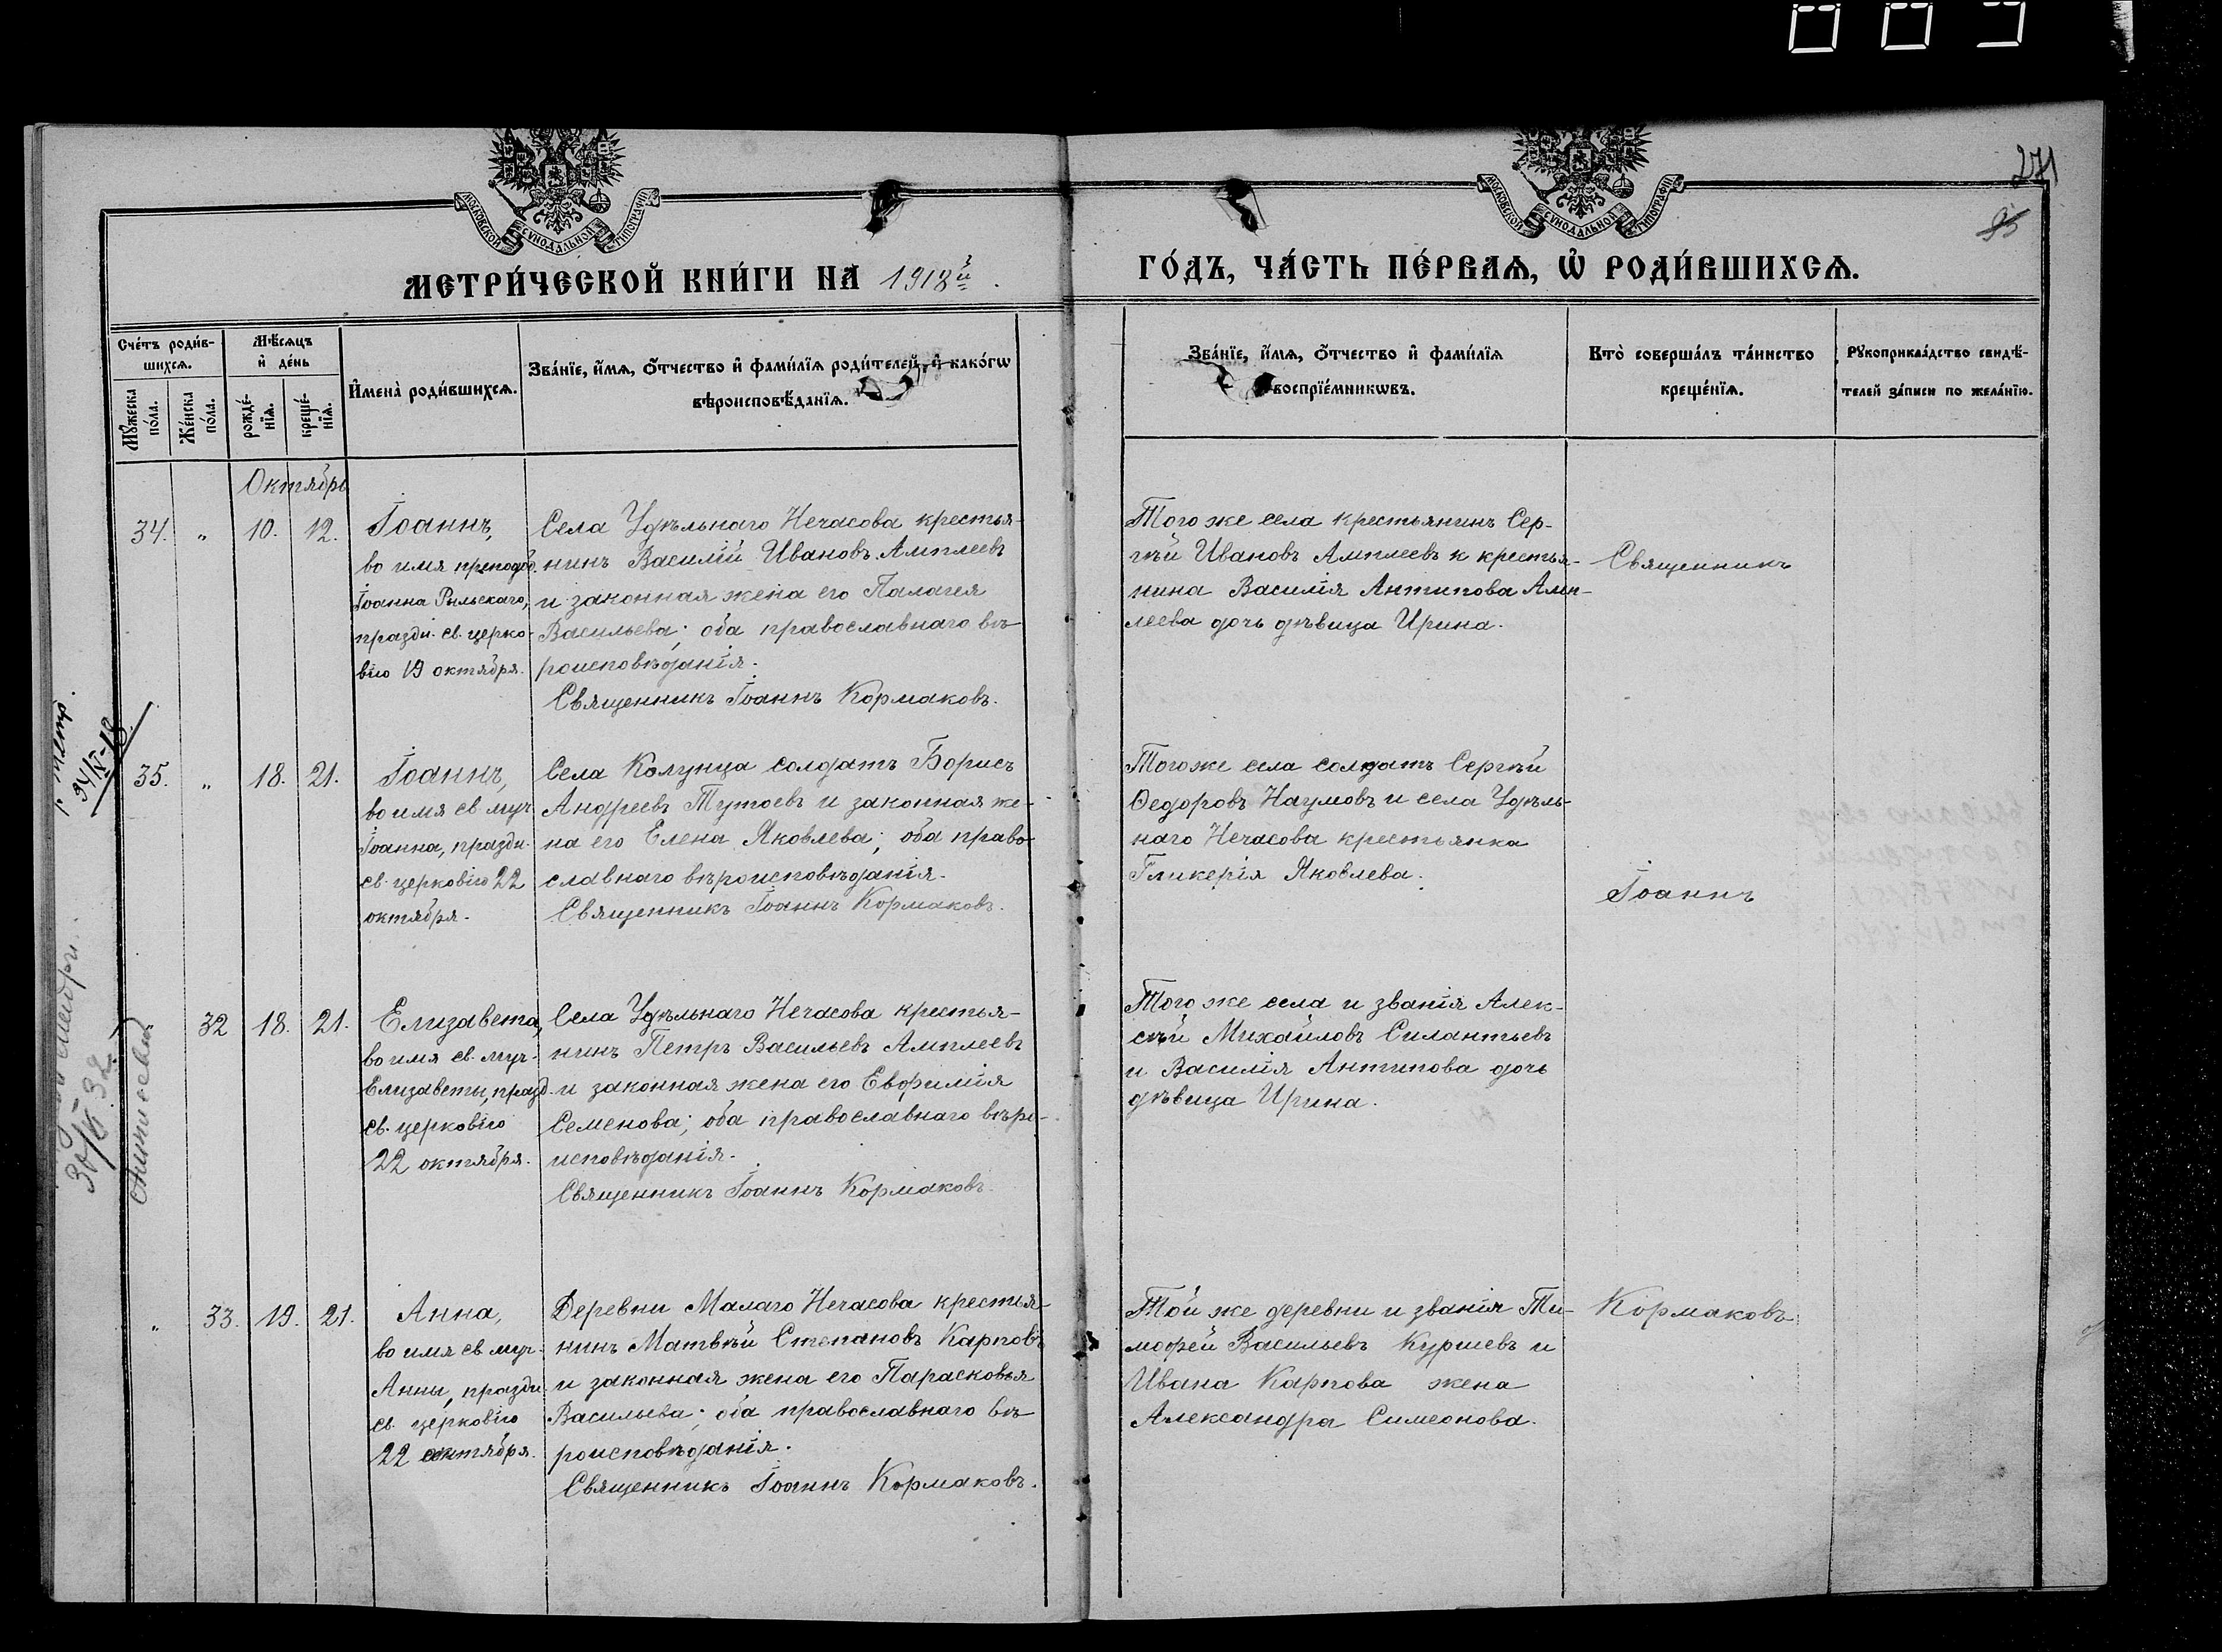 271
95
МОСКОВСКОЙ СѴНОДАЛЬНОЙ ТИПОГРАФІИ
МОСКОВСКОЙ СѴНОДАЛЬНОЙ ТИПОГРАФІИ
МЕТРИ́ЧЕСКОЙ КНИ́ГИ НА 1918й
ГО́ДЪ, ЧА́СТЬ ПЕ́РВАѦ, Ѡ҆ РОДИ́ВШИХСѦ.
Сче́тъ роди́в-
шихсѧ.
Мꙋ́жеска по́ла.
Же́нска по́ла.
Мѣ́сѧцъ
и҆ де́нь
рожде́-
нїѧ.
креще́-
нїѧ.
И҆мена̀ роди́вшихсѧ.
Зва́нїе, и҆́мѧ, ѻ҆́тчество и҆ фами́лїѧ роди́телей, и҆ како́гѡ
вѣроисповѣ́данїѧ.
Зва́нїе, и҆́мѧ, ѻ҆́тчество и҆ фами́лїѧ
воспрїе́мникѡвъ.
Кто̀ соверша́лъ та́инство
креще́нїѧ.
Рꙋкоприкла́дство свидѣ́-
телей за́писи по жела́нїю.
Октябрь
34. " 10. 12.
Іоаннъ,
во имя преподоб.
Іоанна Рыльскаго,
праздн. св. церко-
вію 19 октября.
Села Удѣльнаго Нечасова крестья-
нинъ Василій Ивановъ Амплеевъ
и законная жена его Палагея
Васильева; оба православнаго вѣ-
роисповѣданія.
Священникъ Іоаннъ Кормаковъ.
Того же села крестьянинъ Сер-
гѣй Ивановъ Амплеевъ и крестья-
нина Василія Антипова Амп-
леева дочь дѣвица Ирина.
Священникъ
35. " 18. 21.
Іоаннъ,
во имя св. муч.
Іоанна, праздн.
св. церковію 22
октября.
Села Колунца солдатъ Борисъ
Андреевъ Тутоевъ и законная же-
на его Елена Яковлева; оба право-
славнаго вѣроисповѣданія.
Священникъ Іоаннъ Кормаковъ.
Того же села солдатъ Сергѣй
Ѳедоровъ Наумовъ и села Удѣль-
наго Нечасова крестьянка
Гликерія Яковлева.
Іоаннъ
" 32 18. 21.
Елизавета,
во имя св. муч.
Елизаветы, празд.
св. церковію
22 октября.
Села Удѣльнаго Нечасова крестья-
нинъ Петръ Васильевъ Амплеевъ
и законная жена его Евфимія
Семенова; оба православнаго вѣро-
исповѣданія.
Священникъ Іоаннъ Кормаковъ.
Того же села и званія Алек-
сѣй Михайловъ Силантьевъ
и Василія Антипова дочь
дѣвица Ирина.
" 33. 19. 21.
Анна,
во имя св. муч.
Анны, праздн.
св. церковію
22 октября.
Деревни Малаго Нечасова крестья-
нинъ Матвѣй Степановъ Карповъ
и законная жена его Парасковья
Васильева; оба православнаго вѣ-
роисповѣданія.
Священникъ Іоаннъ Кормаковъ.
Той же деревни и званія Ти-
мофей Васильевъ Куршевъ и
Ивана Карпова жена
Александра Симеонова.
Кормаковъ